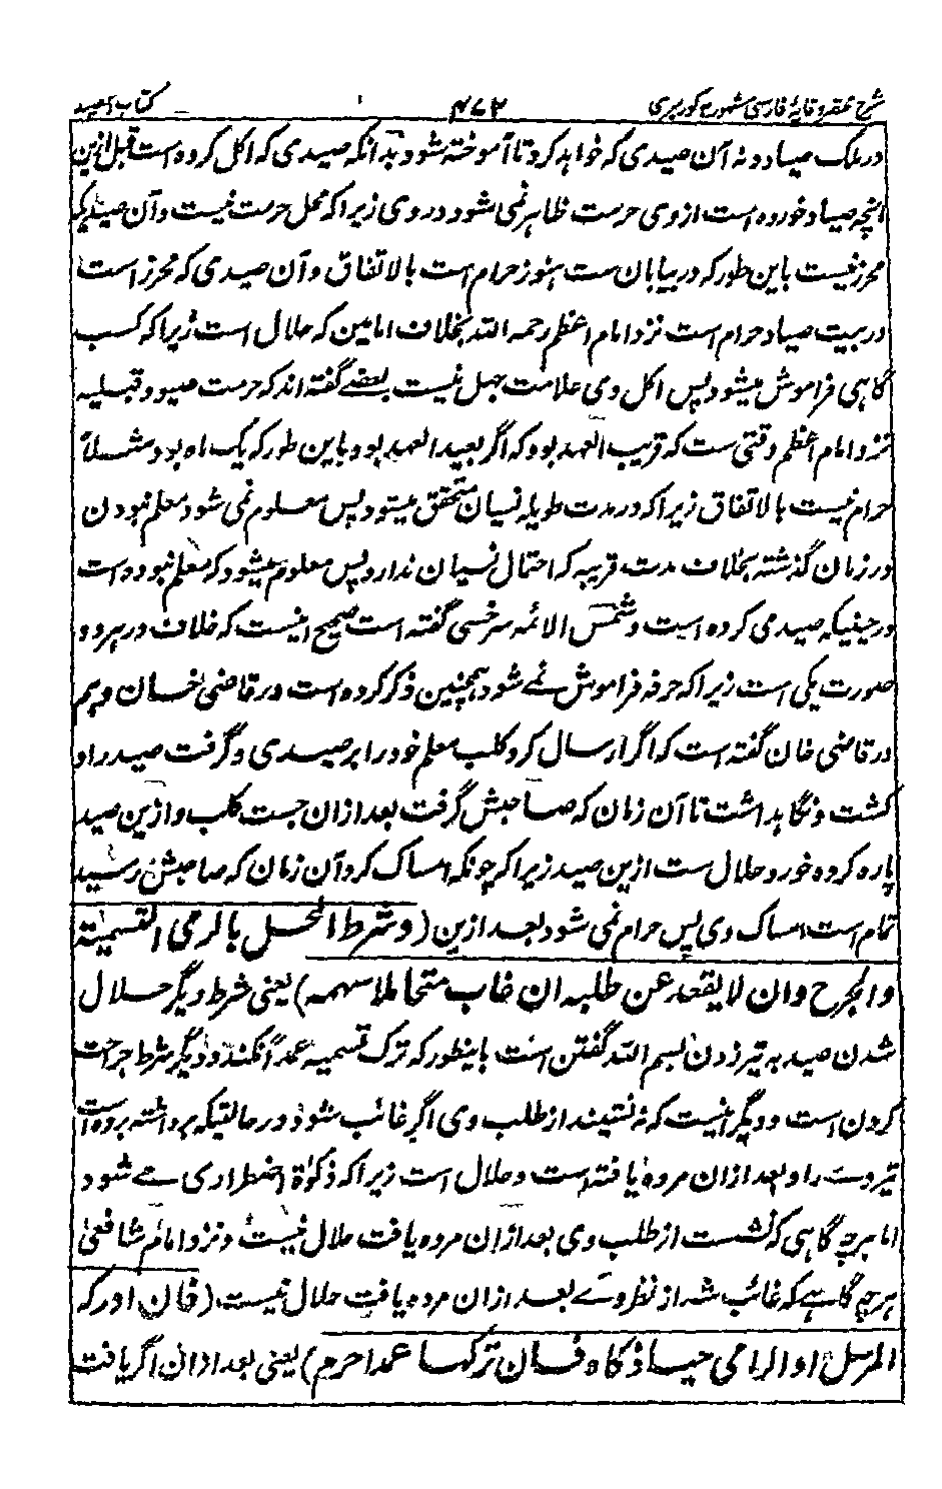 شرح مختصر وقایهٔ فارسی مشهور به کوربری ۴۷۲ کتاب الصید
در ملک صیاد و نه آن صیدی که خواهد کرد تا آموخته شود بدانکه صیدی که اکل کرده است قبل ازین
انچه صیاد خورده است از وی حرمت ظاهر نمی شود در وی زیرا که محل حرمت نیست و آن صیدیکه
محرز نیست باین طور که در بیابان ست هنوز حرام است بالاتفاق و آن صیدی که محرز است
در بیت صیاد حرام است نزد امام اعظم رحمه الله بخلاف امامین که حلال است زیرا که کسب
گاهی فراموش میشود پس اکل وی علامت جهل نیست بعضے گفته اند که حرمت صیود قبلیه
نزد امام اعظم وقتی ست که قریب العهد بود که اگر بعید العهد بود باین طور که یک ماه بود مثلاً
حرام نیست بالاتفاق زیرا که در مدت طویله نسیان متحقق میشود پس معلوم نمی شود معلم نبودن
در زمان گذشته بخلاف مدت قریبه که احتمال نسیان ندارد پس معلوم میشود که معلم نبوده است
در حینیکه صیدی کرده است و شمس الائمه سرخسی گفته است صحیح اینست که خلاف در هر دو
صورت یکی است زیرا که حرفه فراموش نمے شود همچنین ذکر کرده است در قاضی خان و هم
در قاضی خان گفته است که اگر ارسال کرد کلب معلم خود را بر صیدی و گرفت صید را و
کشت و نگاهداشت تا آن زمان که صاحبش گرفت بعد ازان جست کلب و ازین صید
پاره کرده خورد حلال ست ازین صید زیرا که چونکه امساک کرد آن زمان که صاحبش رسید
تمام است امساک وی پس حرام نمی شود بعد ازین (وشرط الحل بالرمی التسمیة
والجرح وان لا یقعد عن طلبه ان غاب متحاملا سهمه) یعنی شرط دیگر حلال
شدن صید به تیر زدن بسم الله گفتن است باینطور که ترک تسمیه عمداً نکند و دیگر شرط جراحت
کردن است و دیگر اینست که نه نشیند از طلب وی اگر غائب شود در حالتیکه برداشته برده است
تیر دست را و بعد ازان مرده یافته است و حلال است زیرا که ذکوة اضطراری مے شود
اما هرچه گاهی که نشست از طلب وی بعد ازان مرده یافت حلال نیست و نزد امام شافعی
هرچه گاہے که غائب شد از نظر وے بعد ازان مرده یافت حلال نیست (فان ادرکه
المرسل او الرامی حیا ذکاه فان ترکها عمدا حرم) یعنی بعد ازان اگر یافت